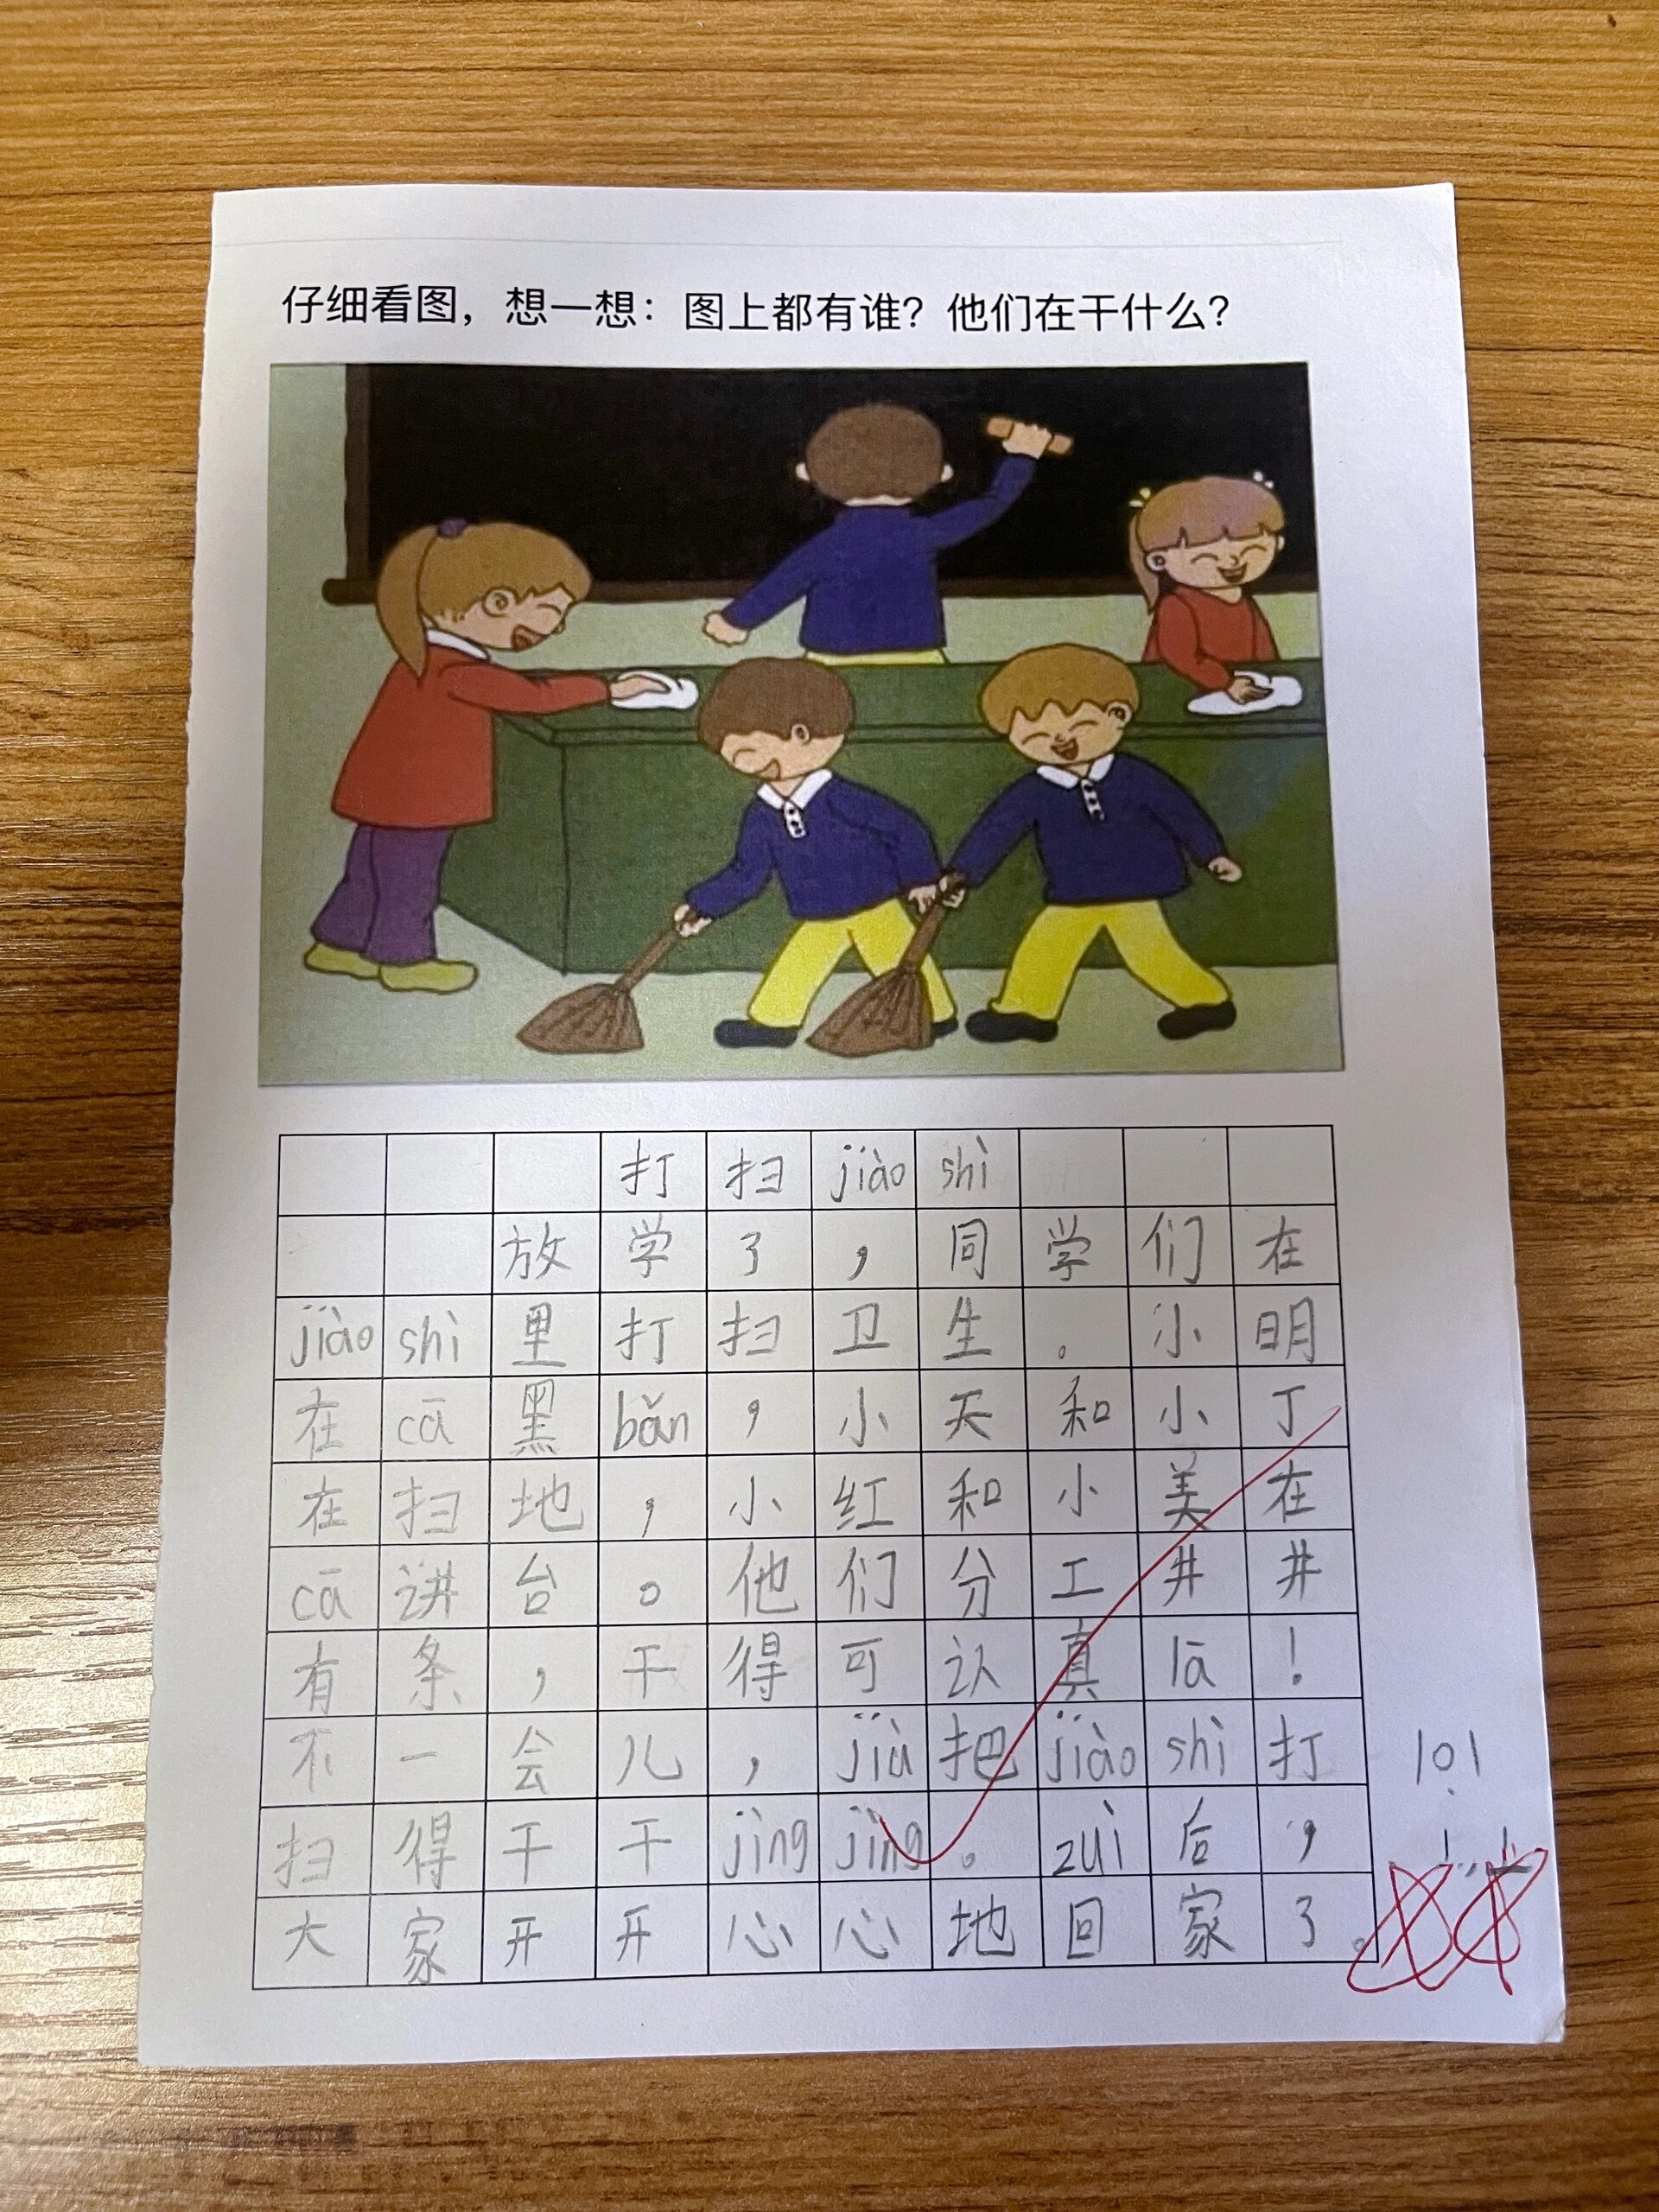 仔细看图，想一想：图上都有谁？他们在干什么？
打扫jiào shì
放学了，同学们在
jiào shì里打扫卫生。小明
在cā黑bǎn，小天和小丁
在扫地，小红和小美在
cā讲台。他们分工井井
有条，干得可认真lā！
不一会儿，jiù把jiào shì打
扫得干干jìng jìng。zuì后，
大家开开心心地回家了。